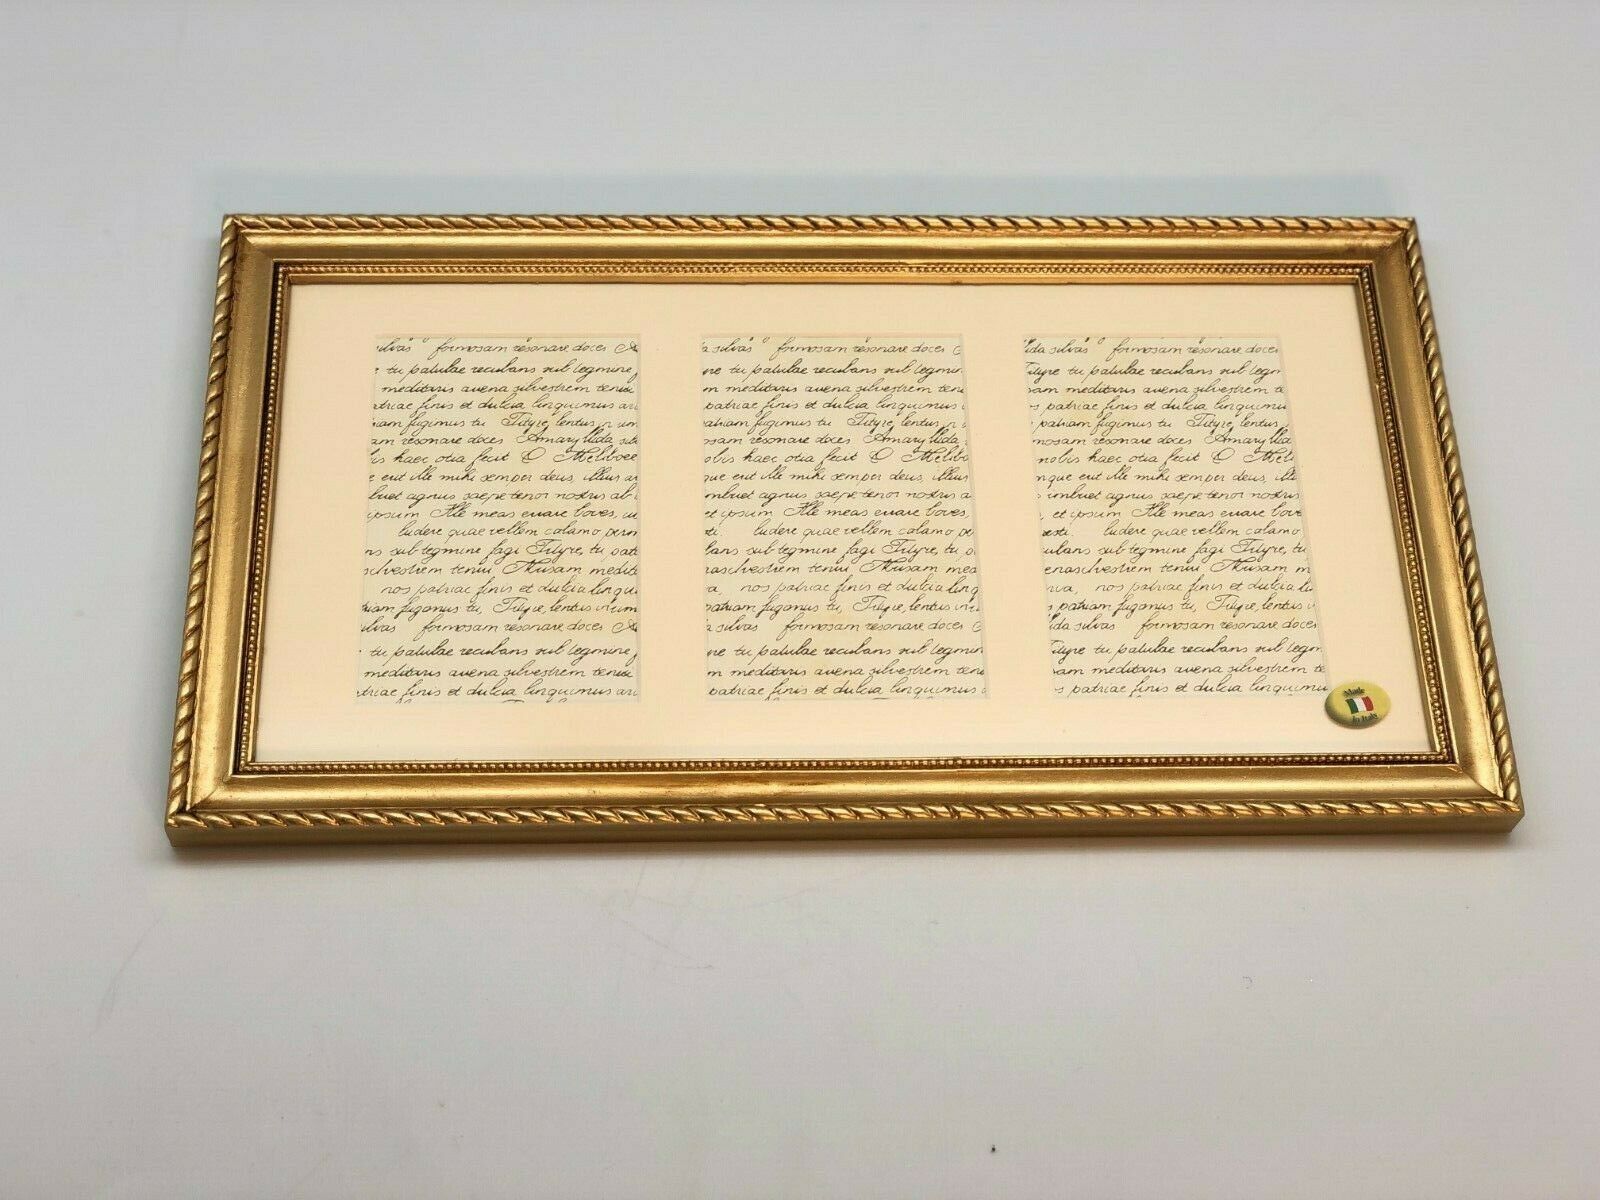 silvas formosam resonare doces
tu patulae recubans sub tegmine
meditaris avena silvestrem tenui
patriae finis et dulcia linquimus
fugimus tu Tityre, lentus
resonare doces Amaryllida
haec otia fecit O Meliboee
erit ille mihi semper deus, illius
imbuet agnus saepe tenor nostris ab
ipsum Ille meas errare boves,
ludere quae vellem calamo
sub tegmine fagi Tityre, tu
silvestrem tenui Musam
nos patriae finis et dulcia
fugamus tu, Tityre, lentus
silvas formosam resonare doces
tu patulae recubans sub tegmine
meditaris avena silvestrem tenui
patriae finis et dulcia linquimus
da silvas formosam resonare doces
tu patulae recubans sub tegmin
m meditaris avena silvestrem
patriae finis et dulcia linquimus
fugimus tu Tityre, lentus
resonare doces Amaryllida
haec otia fecit O Melib
que erit ille mihi semper deus, illius
imbuet agnus saepe tenor nostris a
et ipsum Ille meas errare boves,
ludere quae vellem calamo
sub tegmine fagi Tityre, tu
silvestrem tenui Musam
nos patriae finis et dulcia
patriam fugamus tu, Tityre, lentus
silvas formosam resonare doces
tu patulae recubans sub tegmin
m meditaris avena silvestrem
patriae finis et dulcia linquimus
lida silvas formosam resonare doces
Tityre tu patulae recubans sub tegm
meditaris avena silvestrem
patriae finis et dulcia linquimu
patriam fugimus tu Tityre, lentus
resonare doces Amaryllida
nobis haec otia fecit O Melib
que erit ille mihi semper deus,
imbuet agnus saepe tenor nostris
et ipsum Ille meas errare bove
ludere quae vellem calamo
sub tegmine fagi Tityre, tu
silvestrem tenui Musam m
nos patriae finis et dulcia
patriam fugamus tu, Tityre, lentus
lida silvas formosam resonare doces
Tityre tu patulae recubans sub tegm
meditaris avena silvestrem te
patriae finis et dulcia linquimu
Made
In Italy